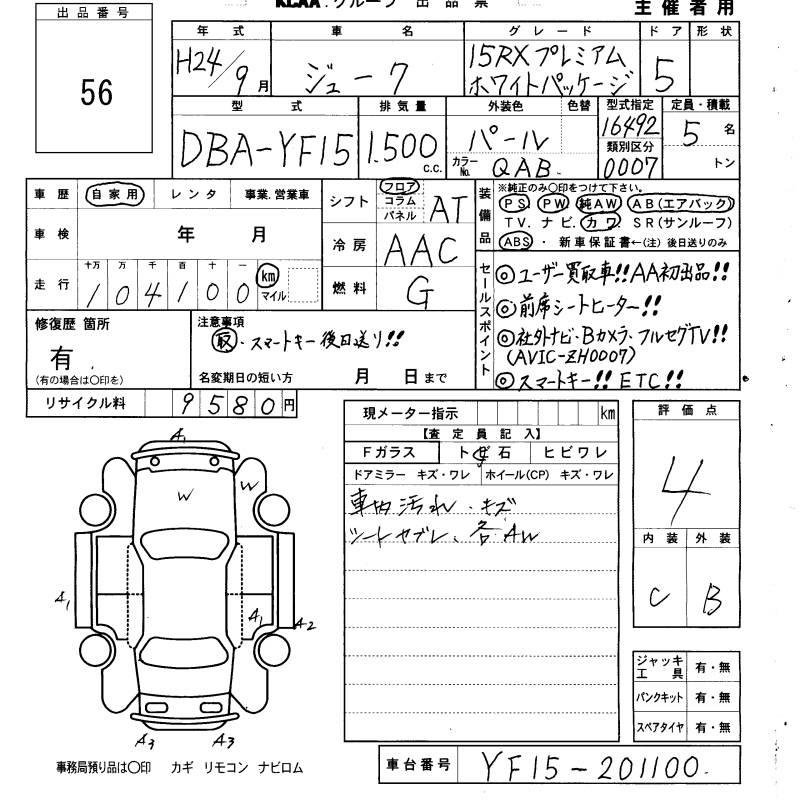 KCAA.グループ 出品票
主催者用
出品番号
56
年式 車名 グレード ドア 形状
H24/9月 ジューク 15RXプレミアム
ホワイトパッケージ 5
型式 排気量 外装色 色替 型式指定 定員・積載
DBA-YF15 1.500 c.c. パール 16492 5名
類別区分
カラーNo. QAB 0007 トン
車歴 自家用 レンタ 事業.営業車
車検 年 月
走行 十万 万 千 百 十 一
104100 km マイル
シフト フロア コラム パネル AT
冷房 AAC
燃料 G
装備品
※純正のみ○印をつけて下さい。
PS PW 純AW AB(エアバック)
TV. ナビ. カワ SR(サンルーフ)
ABS ・ 新車保証書←(注) 後日送りのみ
セールスポイント
◎ユーザー買取車!!AA初出品!!
◎前席シートヒーター!!
◎社外ナビ・Bカメラ、フルセグTV!!
(AVIC-ZH0007)
◎スマートキー!! ETC!!
修復歴 箇所
有
(有の場合は○印を)
注意事項
取・スマートキー後日送り!!
名変期日の短い方 月 日まで
リサイクル料 9580円
現メーター指示 km
【査定員記入】
Fガラス トビ石 ヒビワレ
ドアミラー キズ・ワレ ホイール(CP) キズ・ワレ
車内汚れ・キズ
シートヤブレ、各AW
評価点
4
内装 外装
C B
A1
W W
A1 A1 A2
A3 A3
ジャッキ工具 有・無
パンクキット 有・無
スペアタイヤ 有・無
事務局預り品は○印 カギ リモコン ナビロム
車台番号 YF15-201100.